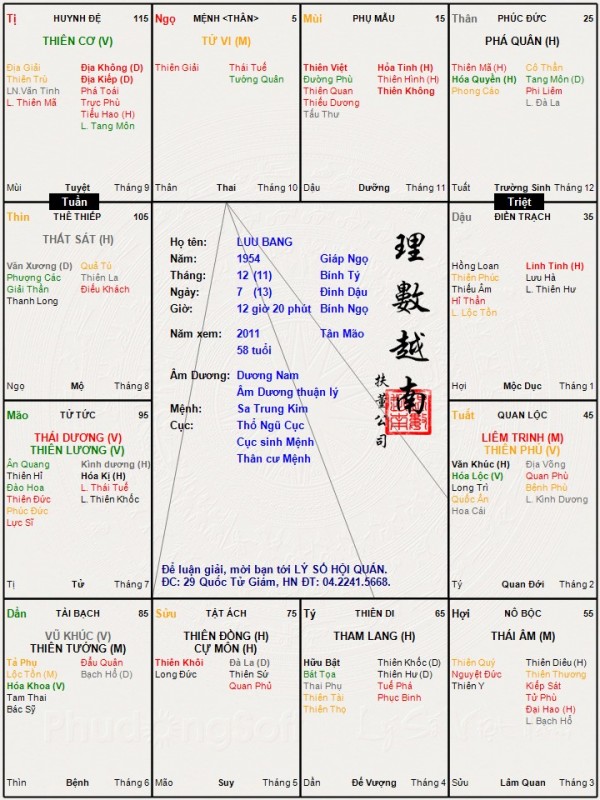 Tị HUYNH ĐỆ 115
THIÊN CƠ (V)
Địa Giải Địa Không (D)
Thiên Trù Địa Kiếp (D)
LN.Văn Tinh Phá Toái
L. Thiên Mã Trực Phù
Tiểu Hao (H)
L. Tang Môn
Mùi Tuyệt Tháng 9
Ngọ MỆNH <THÂN> 5
TỬ VI (M)
Thiên Giải Thái Tuế
Tướng Quân
Thân Thai Tháng 10
Mùi PHỤ MẪU 15
Thiên Việt Hỏa Tinh (H)
Đường Phù Thiên Hình (H)
Thiên Quan Thiên Không
Thiếu Dương
Tấu Thư
Dậu Dưỡng Tháng 11
Thân PHÚC ĐỨC 25
PHÁ QUÂN (H)
Thiên Mã (H) Cô Thần
Hóa Quyền (H) Tang Môn (D)
Phong Cáo Phi Liêm
L. Đà La
Tuất Trường Sinh Tháng 12
Tuần
Triệt
Thìn THÊ THIẾP 105
THẤT SÁT (H)
Văn Xương (D) Quả Tú
Phượng Các Thiên La
Giải Thần Điếu Khách
Thanh Long
Ngọ Mộ Tháng 8
Họ tên: LUU BANG
Năm: 1954 Giáp Ngọ
Tháng: 12 (11) Bính Tý
Ngày: 7 (13) Đinh Dậu
Giờ: 12 giờ 20 phút Bính Ngọ
Năm xem: 2011 Tân Mão
58 tuổi
Âm Dương: Dương Nam
Âm Dương thuận lý
Mệnh: Sa Trung Kim
Cục: Thổ Ngũ Cục
Cục sinh Mệnh
Thân cư Mệnh
理數越南
扶董公司
Để luận giải, mời bạn tới LÝ SỐ HỘI QUÁN.
ĐC: 29 Quốc Tử Giám, HN ĐT: 04.2241.5668.
Dậu ĐIỀN TRẠCH 35
Hồng Loan Linh Tinh (H)
Thiên Phúc Lưu Hà
Thiếu Âm L. Thiên Hư
Hỉ Thần
L. Lộc Tồn
Hợi Mộc Dục Tháng 1
Mão TỬ TỨC 95
THÁI DƯƠNG (V)
THIÊN LƯƠNG (V)
Ân Quang Kình dương (H)
Thiên Hỉ Hóa Kị (H)
Đào Hoa L. Thái Tuế
Thiên Đức L. Thiên Khốc
Phúc Đức
Lực Sĩ
Tị Tử Tháng 7
Tuất QUAN LỘC 45
LIÊM TRINH (M)
THIÊN PHỦ (V)
Văn Khúc (H) Địa Võng
Hóa Lộc (V) Quan Phù
Long Trì Bệnh Phù
Quốc Ấn L. Kình Dương
Hoa Cái
Tý Quan Đới Tháng 2
Dần TÀI BẠCH 85
VŨ KHÚC (V)
THIÊN TƯỚNG (M)
Tả Phụ Đẩu Quân
Lộc Tồn (M) Bạch Hổ (D)
Hóa Khoa (V)
Tam Thai
Bác Sỹ
Thìn Bệnh Tháng 6
Sửu TẬT ÁCH 75
THIÊN ĐỒNG (H)
CỰ MÔN (H)
Thiên Khôi Đà La (D)
Long Đức Thiên Sứ
Quan Phủ
Mão Suy Tháng 5
Tý THIÊN DI 65
THAM LANG (H)
Hữu Bật Thiên Khốc (D)
Bát Tọa Thiên Hư (D)
Thai Phụ Tuế Phá
Thiên Tài Phục Binh
Thiên Thọ
Dần Đế Vượng Tháng 4
Hợi NÔ BỘC 55
THÁI ÂM (M)
Thiên Quý Thiên Diêu (H)
Nguyệt Đức Thiên Thương
Thiên Y Kiếp Sát
Tử Phù
Đại Hao (H)
L. Bạch Hổ
Sửu Lâm Quan Tháng 3